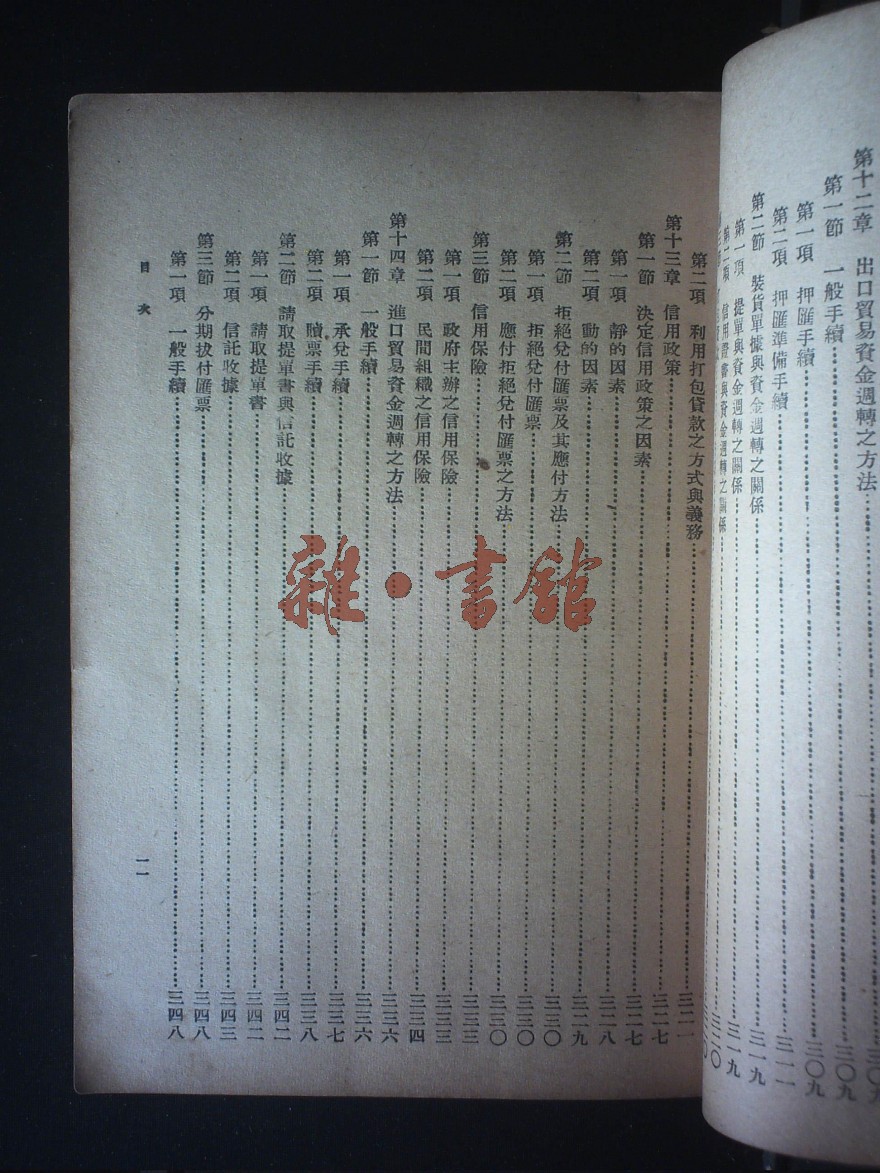 第十二章　出口貿易資金週轉之方法………三〇九
第一節　一般手續………三〇九
第一項　押匯手續………三〇九
第二項　押匯準備手續………三一一
第二節　裝貨單據與資金週轉之關係………三一九
第一項　提單與資金週轉之關係………三一九
信用證書與資金週轉之關係………三二〇
第二項　利用打包貸款之方式與義務………三二一
第十三章　信用政策………三二七
第一節　決定信用政策之因素………三二七
第一項　靜的因素………三二八
第二項　動的因素………三二九
第二節　拒絕兌付匯票及其應付方法………三三〇
第一項　拒絕兌付匯票………三三〇
第二項　應付拒絕兌付匯票之方法………三三〇
第三節　信用保險………三三三
第一項　政府主辦之信用保險………三三三
第二項　民間組織之信用保險………三三四
第十四章　進口貿易資金週轉之方法………三三六
第一節　一般手續………三三六
第一項　承兌手續………三三七
第二項　贖票手續………三三八
第二節　請取提單書與信託收據………三四二
第一項　請取提單書………三四二
第二項　信託收據………三四三
第三節　分期拔付匯票………三四八
第一項　一般手續………三四八
目次
一一
雜·書館